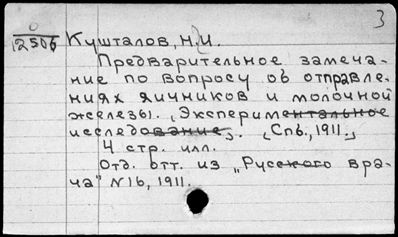 3
0
12506 Кушталов, Н.И.
Предварительное замеча-
ние по вопросу об отправле-
ниях яичников и молочной
железы. [Экспериментальное
исследование]. [Спб., 1911.]
4 стр. илл.
Отд. отт. из „Русского вра-
ча" №16, 1911.